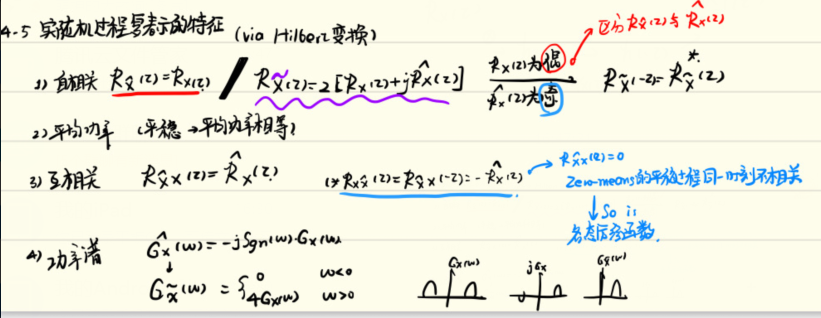 4-5 实随机过程复表示的特征 (via Hilbert变换)
区分 Rx(τ)与 R̂x(τ)
1) 自相关 Rx̂(τ)=Rx(τ) / Rx̃(τ)=2[Rx(τ)+jR̂x(τ)] Rx(τ)为偶 R̂x(τ)为奇 Rx̃(-τ)=R*x̃(τ)
2) 平均功率 (平稳→平均功率相等)
3) 互相关 Rx̂x(τ)=R̂x(τ) Rxx̂(τ)=Rx̂x(-τ)=-R̂x(τ) → Rx̂x(0)=0
Zero-means的平稳过程同一时刻不相关
↓ So is
各态历经函数.
4) 功率谱 Ĝx(ω)=-jSgn(ω)·Gx(ω)
↓
Gx̃(ω)={0 ω<0
4Gx(ω) ω>0
Gx(ω) jĜx Gx̃(ω)